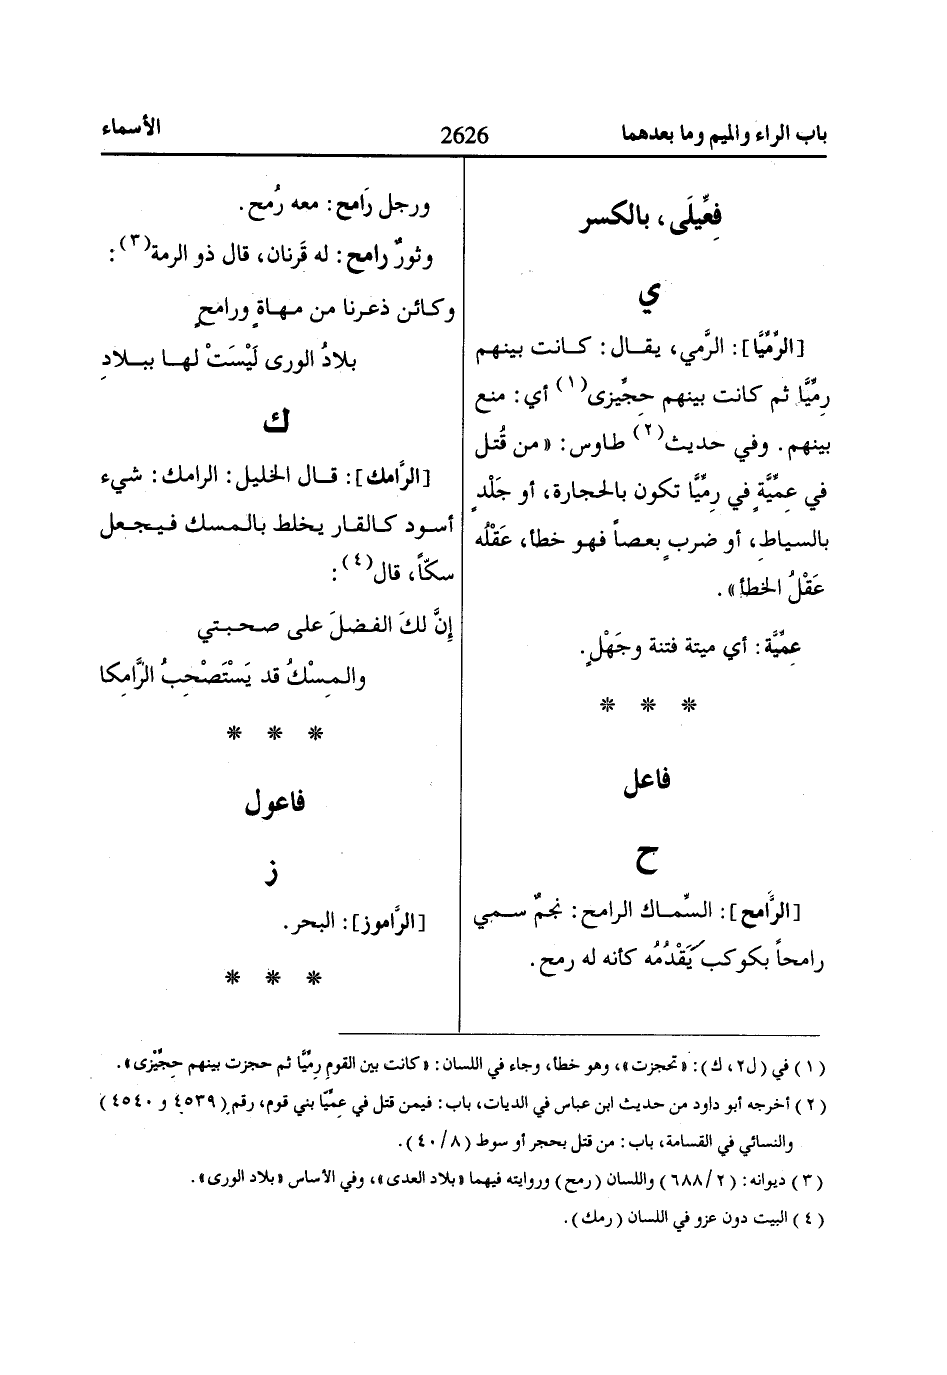 باب الراء والميم وما بعدهما
2626
الأسماء
فِعِّيلَى، بالكسر
ي
[الرِّمِّيَّا]: الرَّمي، يقال: كانت بينهم
رِمِّيَّا ثم كانت بينهم حِجِّيزى(١) أي: منع
بينهم. وفي حديث(٢) طاوس: «من قُتل
في عِمِّيَّةٍ في رِمِّيَّا تكون بالحجارة، أو جَلْدٍ
بالسياط، أو ضربٍ بعصاً فهو خطأ، عَقْلُه
عَقْلُ الخطأ».
عِمِّيَّة: أي ميتة فتنة وجَهْلٍ.
* * *
فاعل
ح
[الرَّامح]: السِّماك الرامح: نجمٌ سمي
رامحاً بكوكب يَقْدُمُه كأنه له رمح.
ورجل رَامح: معه رُمح.
وثورٌ رامح: له قَرنان، قال ذو الرمة(٣):
وكائن ذعرنا من مهاةٍ ورامحٍ
بلادُ الورى لَيْسَتْ لها ببلادِ
ك
[الرَّامك]: قال الخليل: الرامك: شيء
أسود كالقار يخلط بالمسك فيجعل
سكّاً، قال(٤):
إِنَّ لكَ الفضلَ على صحبتي
والمِسْكُ قد يَسْتَصْحِبُ الرَّامِكا
* * *
فاعول
ز
[الرَّاموز]: البحر.
* * *
(١) في (ل٢، ك): «تحجزت»، وهو خطأ، وجاء في اللسان: «كانت بين القوم رِمِّيَّا ثم حجزت بينهم حِجِّيْزى».
(٢) أخرجه أبو داود من حديث ابن عباس في الديات، باب: فيمن قتل في عِمِّيَّا بني قوم، رقم (٤٥٣٩ و ٤٥٤٠)
والنسائي في القسامة، باب: من قتل بحجر أو سوط (٨/٤٠).
(٣) ديوانه: (٢/٦٨٨) واللسان (رمح) وروايته فيهما «بلاد العدى»، وفي الأساس «بلاد الورى».
(٤) البيت دون عزو في اللسان (رمك).